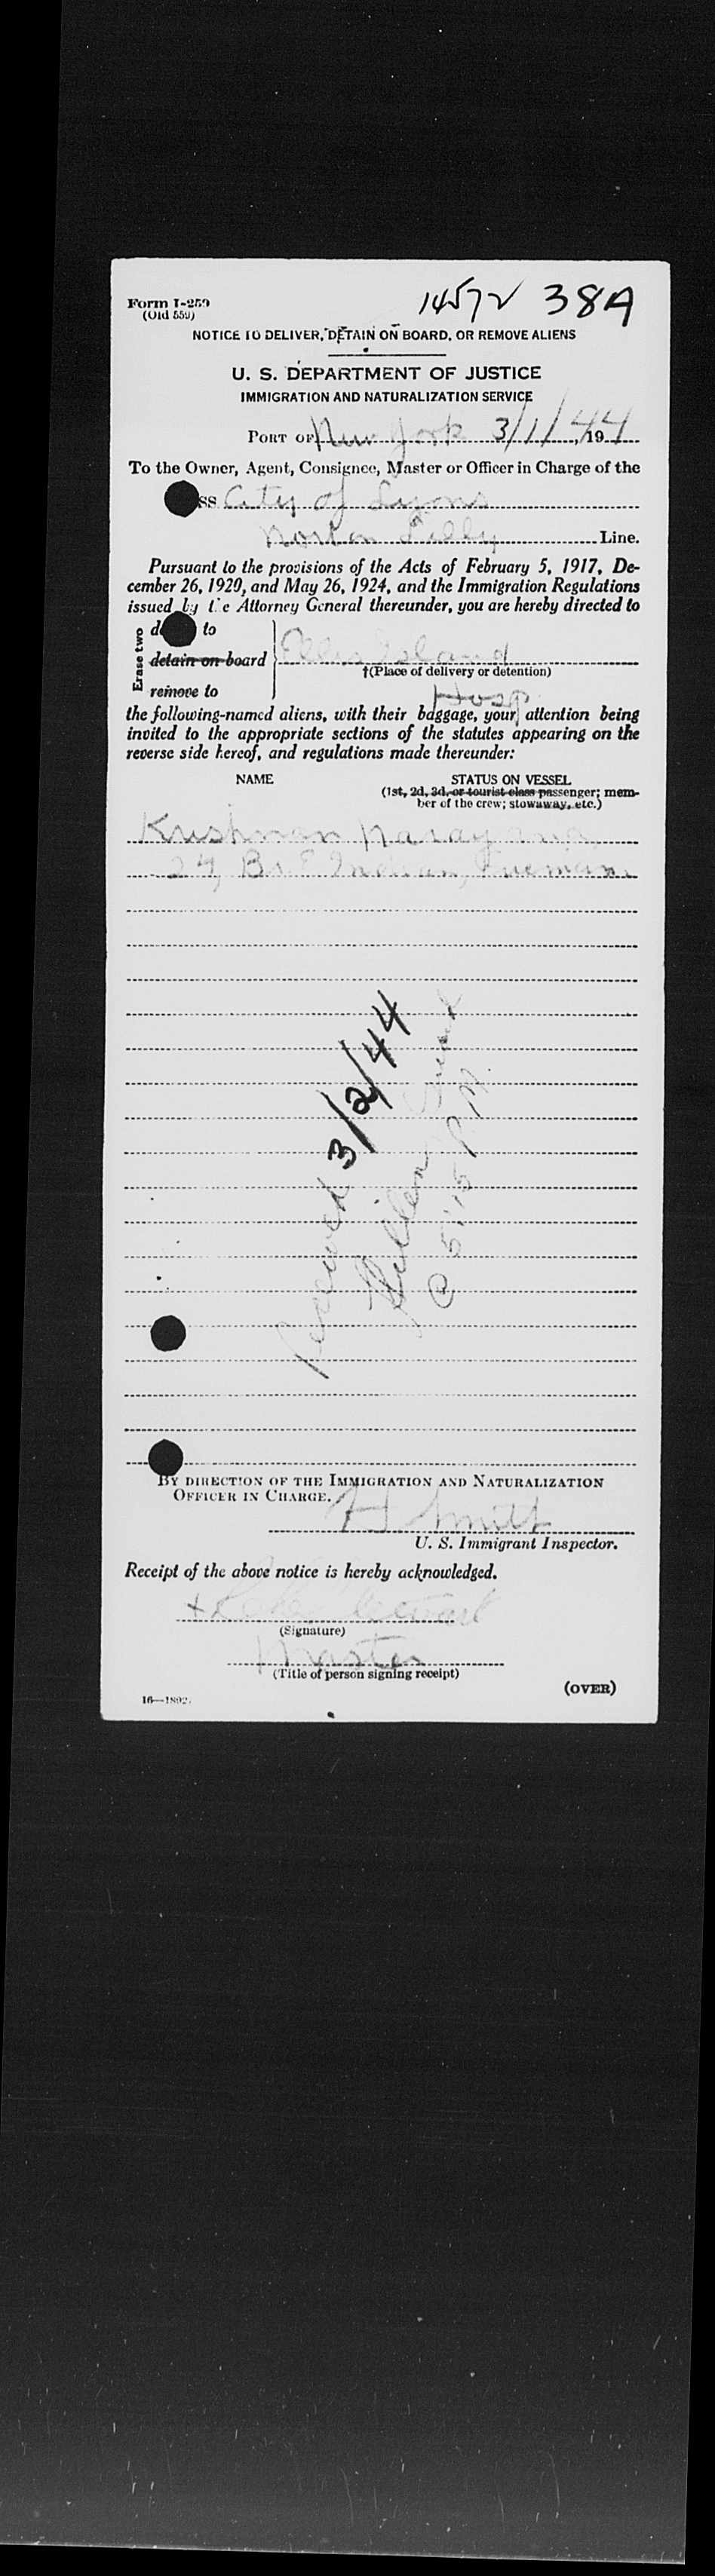 Form I-259
(Old 559)
14572 38A
NOTICE TO DELIVER, DETAIN ON BOARD, OR REMOVE ALIENS
U. S. DEPARTMENT OF JUSTICE
IMMIGRATION AND NATURALIZATION SERVICE
PORT OF New York 3/1/44, 19
To the Owner, Agent, Consignee, Master or Officer in Charge of the
SS City of Lyons
Norton Lilly Line.
Pursuant to the provisions of the Acts of February 5, 1917, De-
cember 26, 1920, and May 26, 1924, and the Immigration Regulations
issued by the Attorney General thereunder, you are hereby directed to
Erase two
to
detain on board
remove to
Ellis Island
†(Place of delivery or detention)
Hosp
the following-named aliens, with their baggage, your attention being
invited to the appropriate sections of the statutes appearing on the
reverse side hereof, and regulations made thereunder:
NAME STATUS ON VESSEL
(1st, 2d, 3d, or tourist class passenger; mem-
ber of the crew; stowaway, etc.)
Krishnan Narayana,
24, Br E Indian, Fireman
Received 3/2/44
@ 5:15 P.M.
BY DIRECTION OF THE IMMIGRATION AND NATURALIZATION
OFFICER IN CHARGE.
H Smith
U. S. Immigrant Inspector.
Receipt of the above notice is hereby acknowledged.
(Signature)
Master
(Title of person signing receipt)
(OVER)